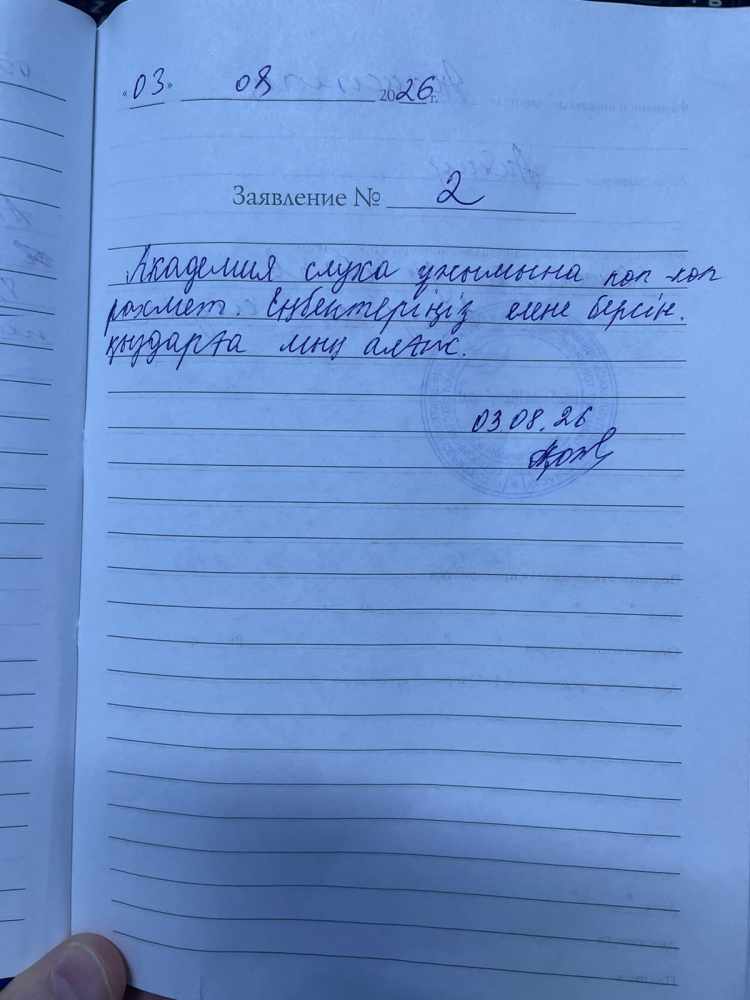 «03» 08 2026 г.
Заявление № 2
Академия слуха ұжымына көп-көп
рахмет. Еңбектеріңіз жене берсін.
қыздарға мың алғыс.
03 08. 26